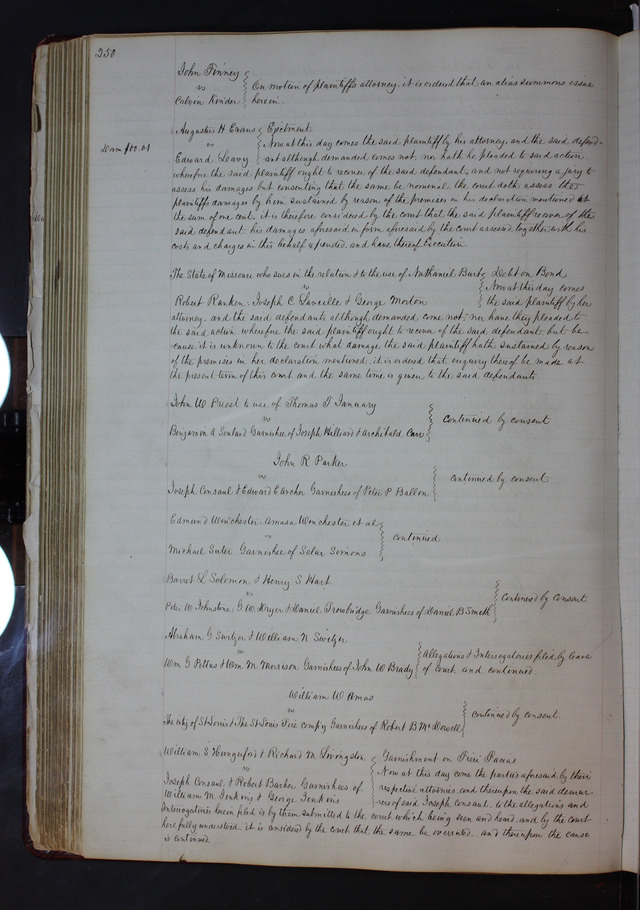 250
John Finney
vs
Calvin Kinder
On motion of plaintiffs attorney it is ordered that an alias summons issue
herein.
Augustus H Evans Ejectment
vs
Edward Leavy
Now at this day comes the said plaintiff by his attorney, and the said defend-
ant although demanded comes not, nor hath he pleaded to said action
wherefore the said plaintiff ought to recover of the said defendant, and not requiring a jury to
assess his damages but consenting that the same be nominal the court doth assess the
plaintiffs damages by him sustained by reason of the premises in his declaration mentioned at
the sum of one cent, it is therefore considered by the court that the said plaintiff recover of the
said defendant his damages aforesaid in form aforesaid by the court assessed together with his
costs and charges in this behalf expended, and have thereof Execution
The State of Missouri who sues in the relation & to the use of Nathaniel Debt on Bond
vs
Robert Ranken, Joseph C & George Morton
Now at this day comes
the said plaintiff by her
attorney, and the said defendants although demanded come not, nor have they pleaded to
the said action wherefore the said plaintiff ought to recover of the said defendant but be-
cause it is unknown to the court what damage the said plaintiff hath sustained by reason
of the premises in her declaration mentioned, it is ordered that enquiry thereof be made at
the present term of this court and the same time is given to the said defendants
John W Priest to use of Thomas T January
vs
Benjamin A Soulard Garnishee of Joseph Williard & Archibald Carr
continued by consent
John R Parker
vs
Joseph Consaul & Edward E Archer Garnishees of Peter P Ballon
continued by consent
Edmund Winchester, Amasa Winchester et al
vs
Michael Suter Garnishee of Selar Simons
continued
Barret L Solomon & Henry S Hart
vs
Peter W Johnstone, G W Dryer & Daniel Trowbridge Garnishees of Daniel B Smith
Continued by consent
Abraham G Switzer & William N Switzer
vs
Wm G Pettus & Wm M Morrison Garnishees of John W Brady
Allegations & Interrogatories filed by leave
of court, and continued
William W Amos
vs
The City of St Louis & The St Louis Fire Compy Garnishees of Robert B McDowell
continued by consent
William S Hungerford & Richard M Livingston Garnishment on Fieri Facias
vs
Joseph Consaul & Robert Barker Garnishees of
William M Jenkins & George Jenkins
Now at this day come the parties aforesaid by their
respective attornies, and thereupon the said demur-
rers of said Joseph Consaul, to the allegations and
Interrogatories herein filed is by them submitted to the court, which being seen and heard, and by the court
here fully understood, it is considered by the court that the same be overruled, and thereupon the cause
is continued